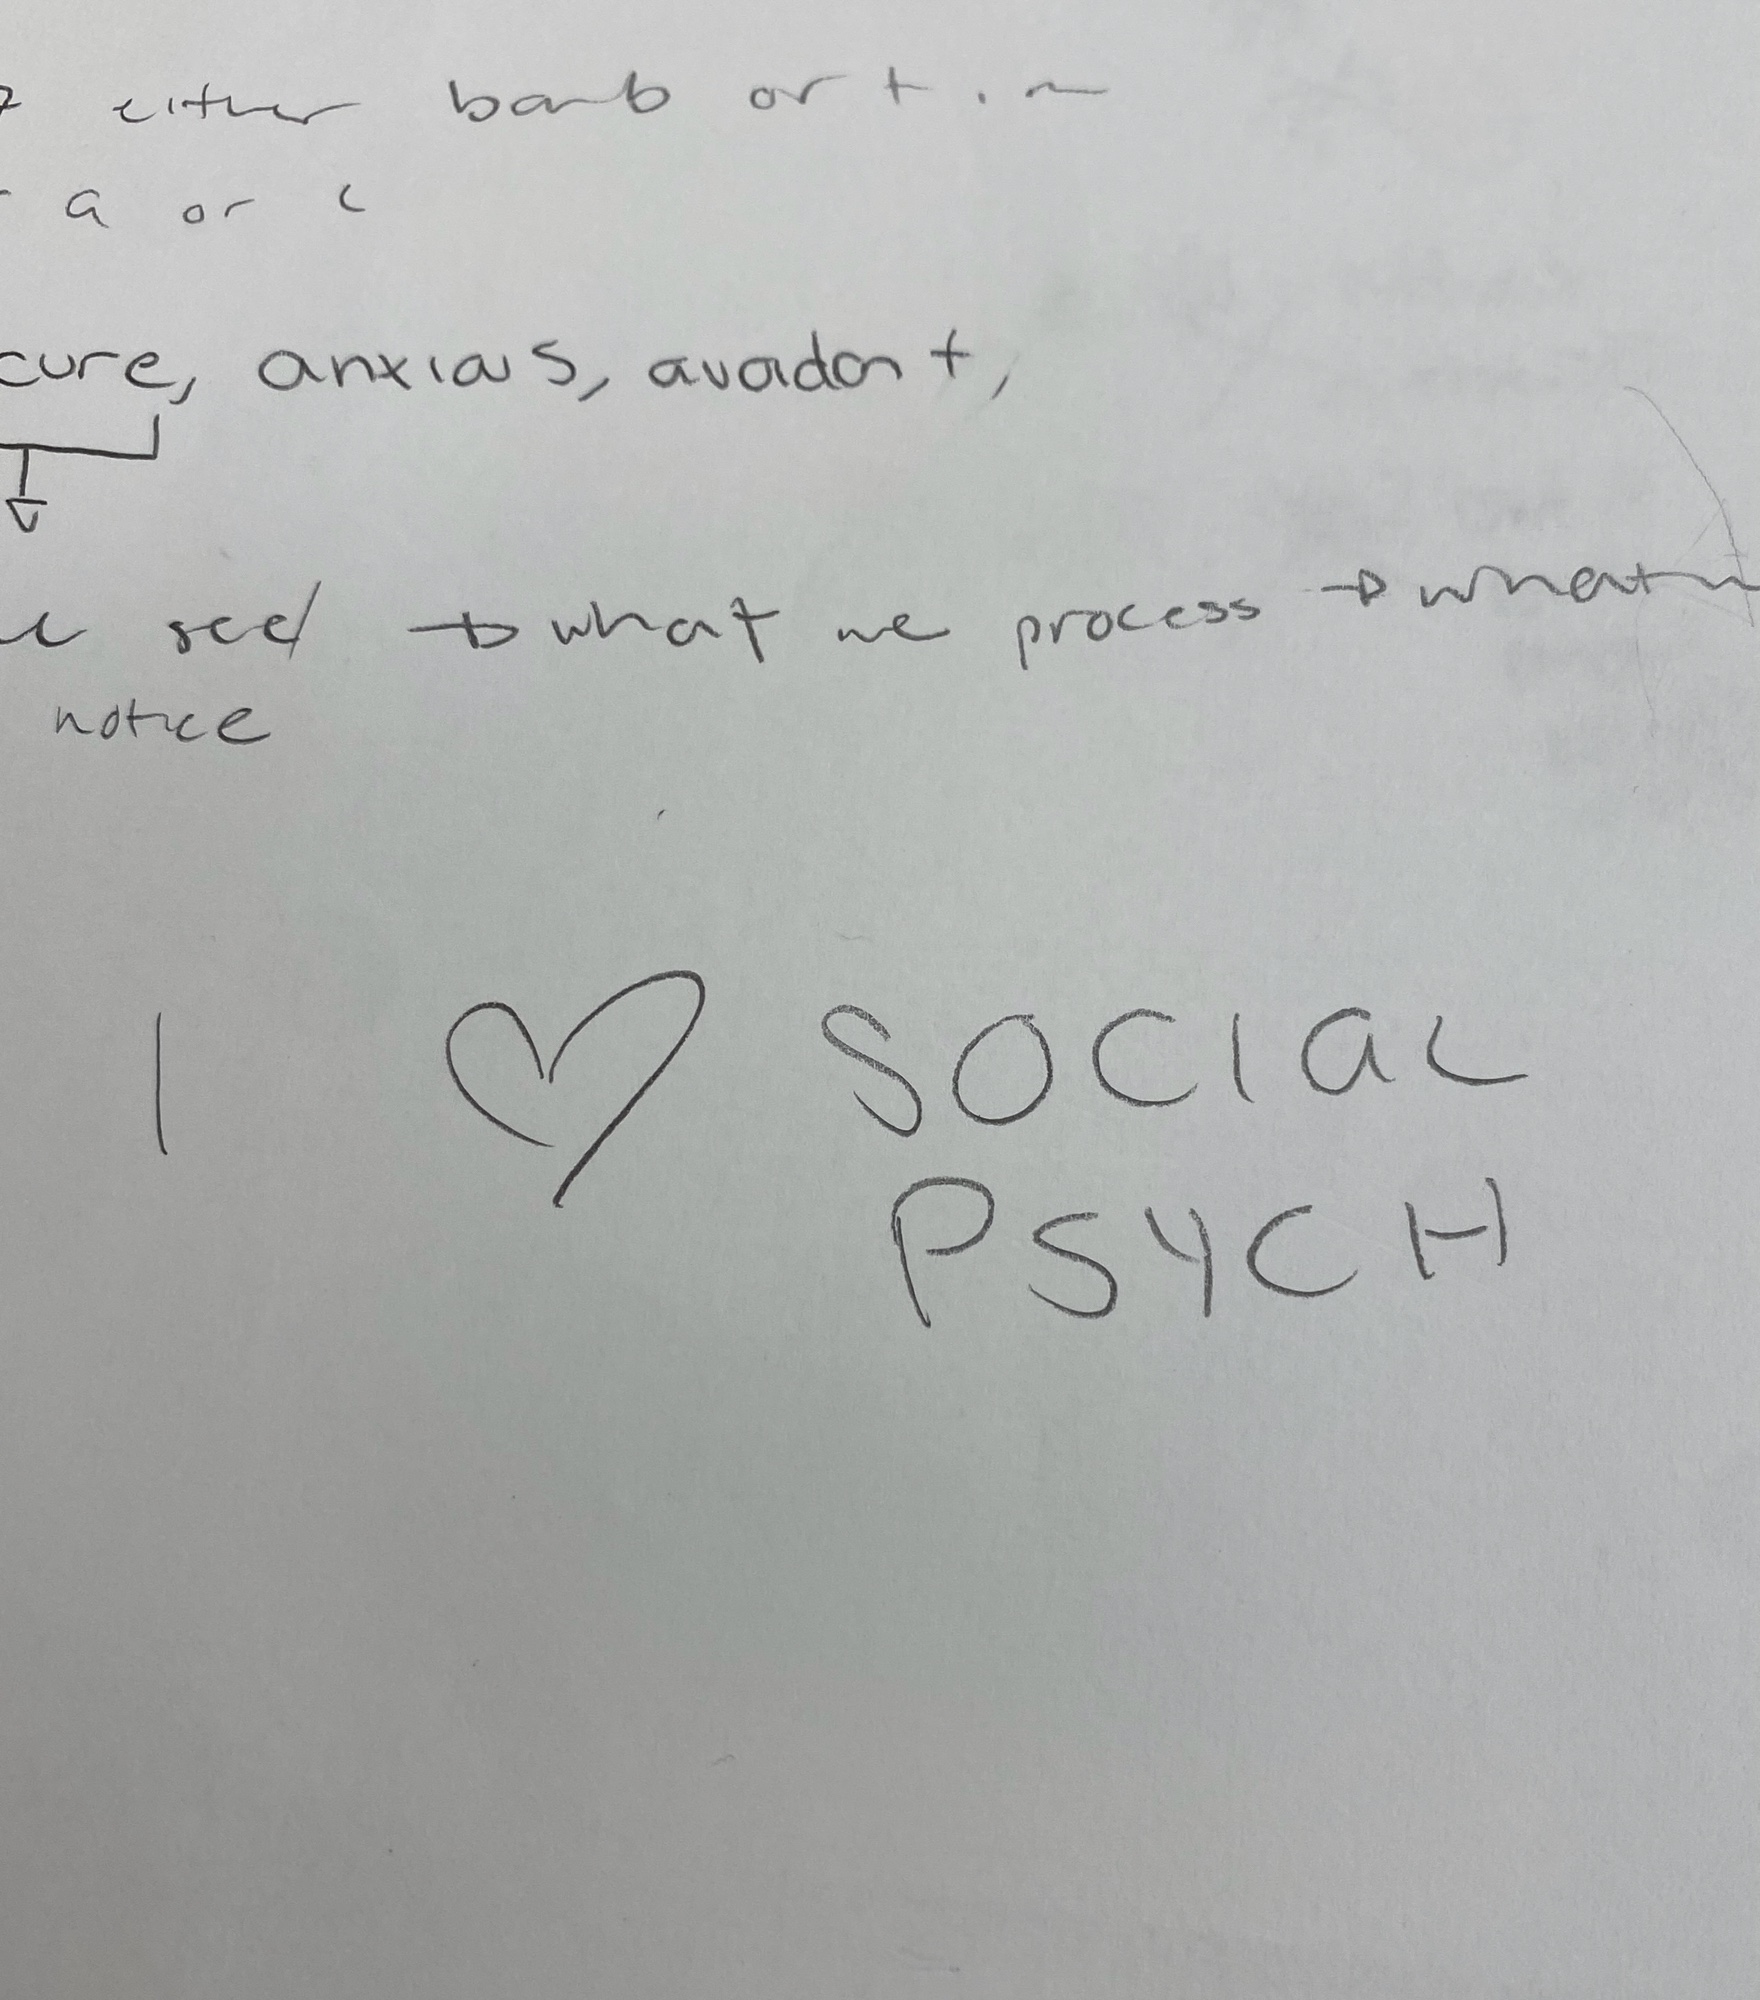 either barb or tim
a or c
cure, anxious, avoidant,
see/ → what we process → what
notice
I ♡ SOCIAL
PSYCH